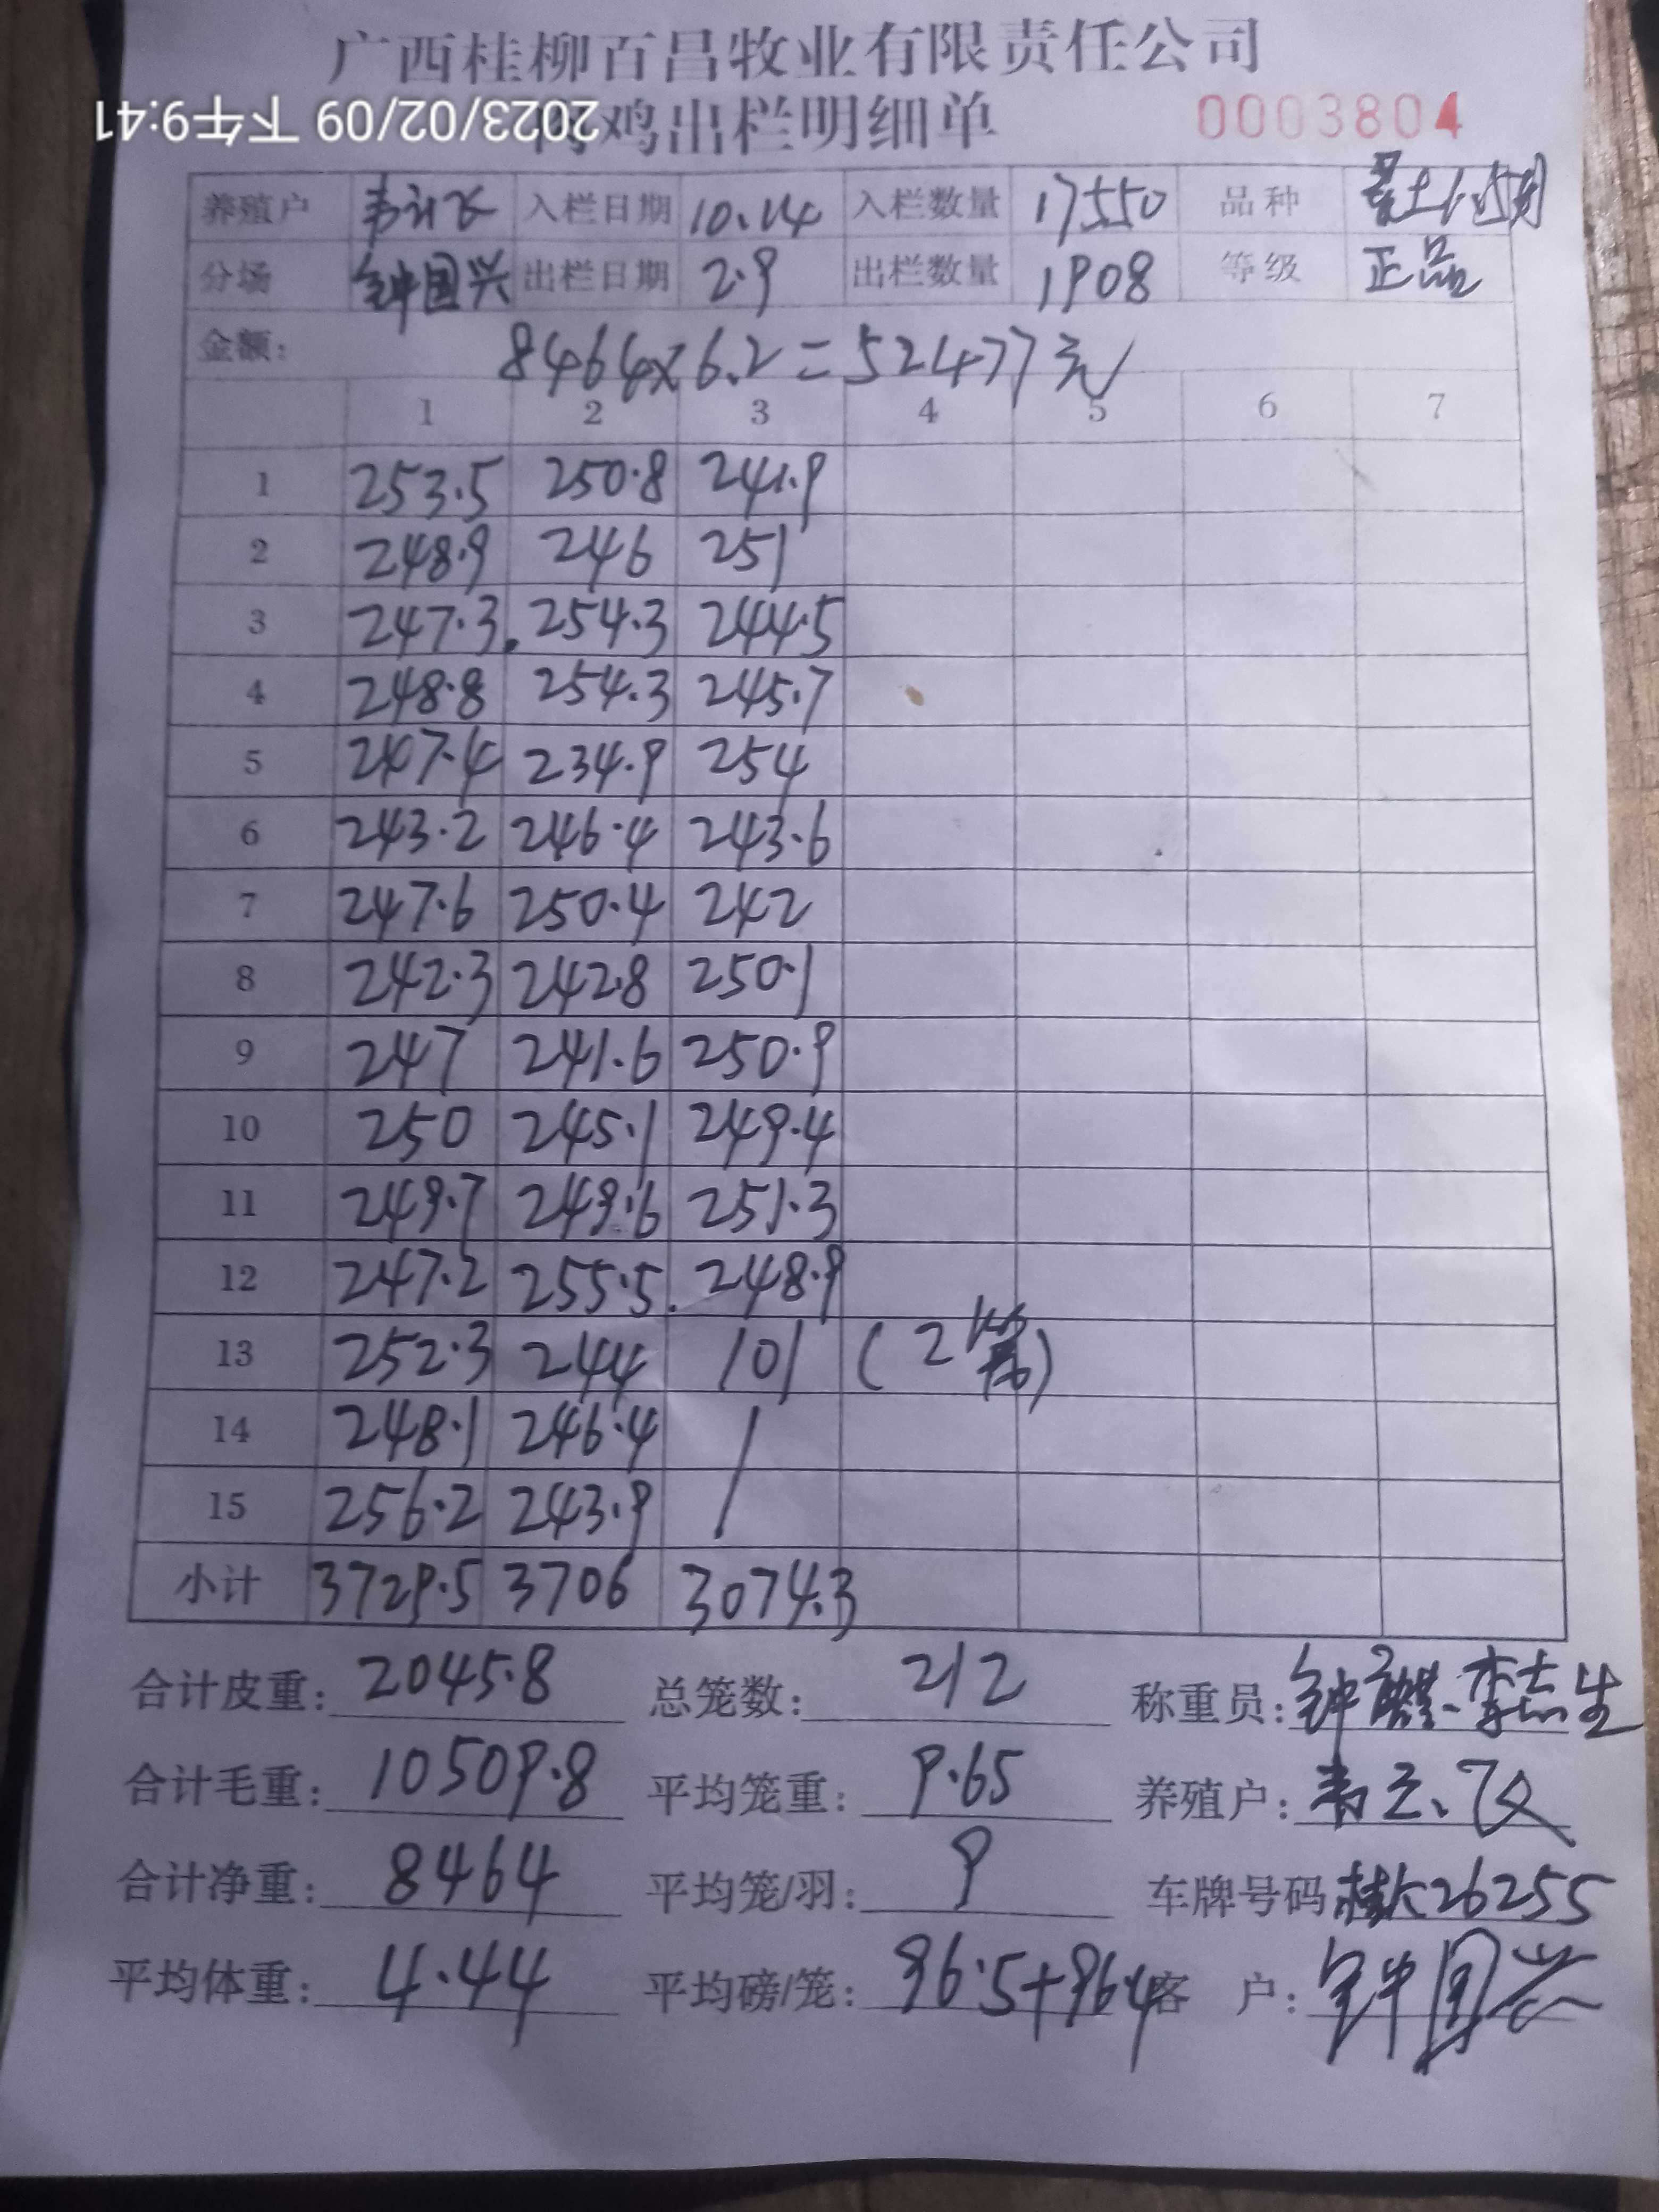 广西桂柳百昌牧业有限责任公司
2023/02/09 下午9:41
鸡出栏明细单 0003804
养殖户 韦 飞 入栏日期 10.14 入栏数量 17550 品种 土1.5
分场 钟国兴 出栏日期 2.9 出栏数量 1908 等级 正品
金额: 8464×6.2=52477元
1 2 3 4 5 6 7
1 253.5 250.8 241.9
2 248.9 246 251
3 247.3 254.3 244.5
4 248.8 254.3 245.7
5 247.4 234.9 254
6 243.2 246.4 243.6
7 247.6 250.4 242
8 242.3 242.8 250.1
9 247 241.6 250.9
10 250 245.1 249.4
11 249.7 249.6 251.3
12 247.2 255.5 248.9
13 252.3 244 101 (2笼)
14 248.1 246.4 /
15 256.2 243.9 /
小计 3729.5 3706 3074.3
合计皮重: 2045.8 总笼数: 212 称重员: 钟 、李志生
合计毛重: 10509.8 平均笼重: 9.65 养殖户: 韦 飞
合计净重: 8464 平均笼/羽: 9 车牌号码 桂K26255
平均体重: 4.44 平均磅/笼: 96.5+96.4 客 户: 钟国兴